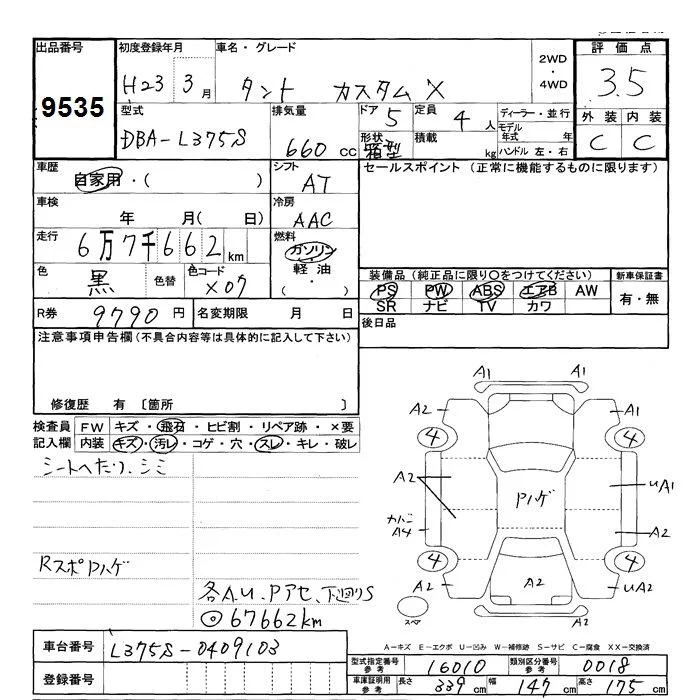 出品番号
9535
初度登録年月
H23 3月
車名・グレード
タント カスタム X
2WD
・
4WD
評価点
3.5
外装 内装
C C
型式
DBA-L375S
排気量
660 cc
ドア 5
形状 箱型
定員 4 人
積載 kg
ディーラー・並行
モデル年式 年
ハンドル 左・右
車歴
自家用・( )
シフト
AT
セールスポイント (正常に機能するものに限ります)
車検
年 月( 日)
冷房
AAC
走行
6万7千662 km
燃料
ガソリン
軽油
( ・ )
色
黒
色替
色コード
X07
装備品 (純正品に限り○をつけてください)
PS PW ABS エアB AW
SR ナビ TV カワ
新車保証書
有・無
R券 9790 円
名変期限 月 日
後日品
注意事項申告欄 (不具合内容等は具体的に記入して下さい)
修復歴 有 〔箇所 〕
検査員記入欄
FW キズ・飛石・ヒビ割・リペア跡・×要
内装 キズ・汚レ・コゲ・穴・スレ・キレ・破レ
シートヘたり、シミ
RスポPハゲ
各A.U、Pアセ、下廻りS
◎67662km
A1 A1
A2 A1
4 4
A2 Pハゲ UA1
カハニ
A4 A2
4 4
A2 A2 UA2
スペア A1 A2
A-キズ E-エクボ U-凹み W-補修跡 S-サビ C-腐食 XX-交換済
車台番号 L375S-0409103
登録番号
型式指定番号 参考 16010
類別区分番号 参考 0018
車庫証明用 参考 長さ 339 cm 幅 147 cm 高さ 175 cm